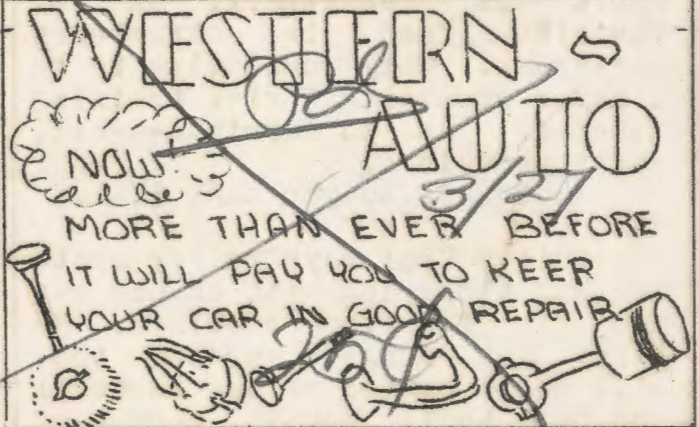 WESTERN ~
AUTO
Pd
NOW!
3/27
MORE THAN EVER BEFORE
IT WILL PAY YOU TO KEEP
YOUR CAR IN GOOD REPAIR